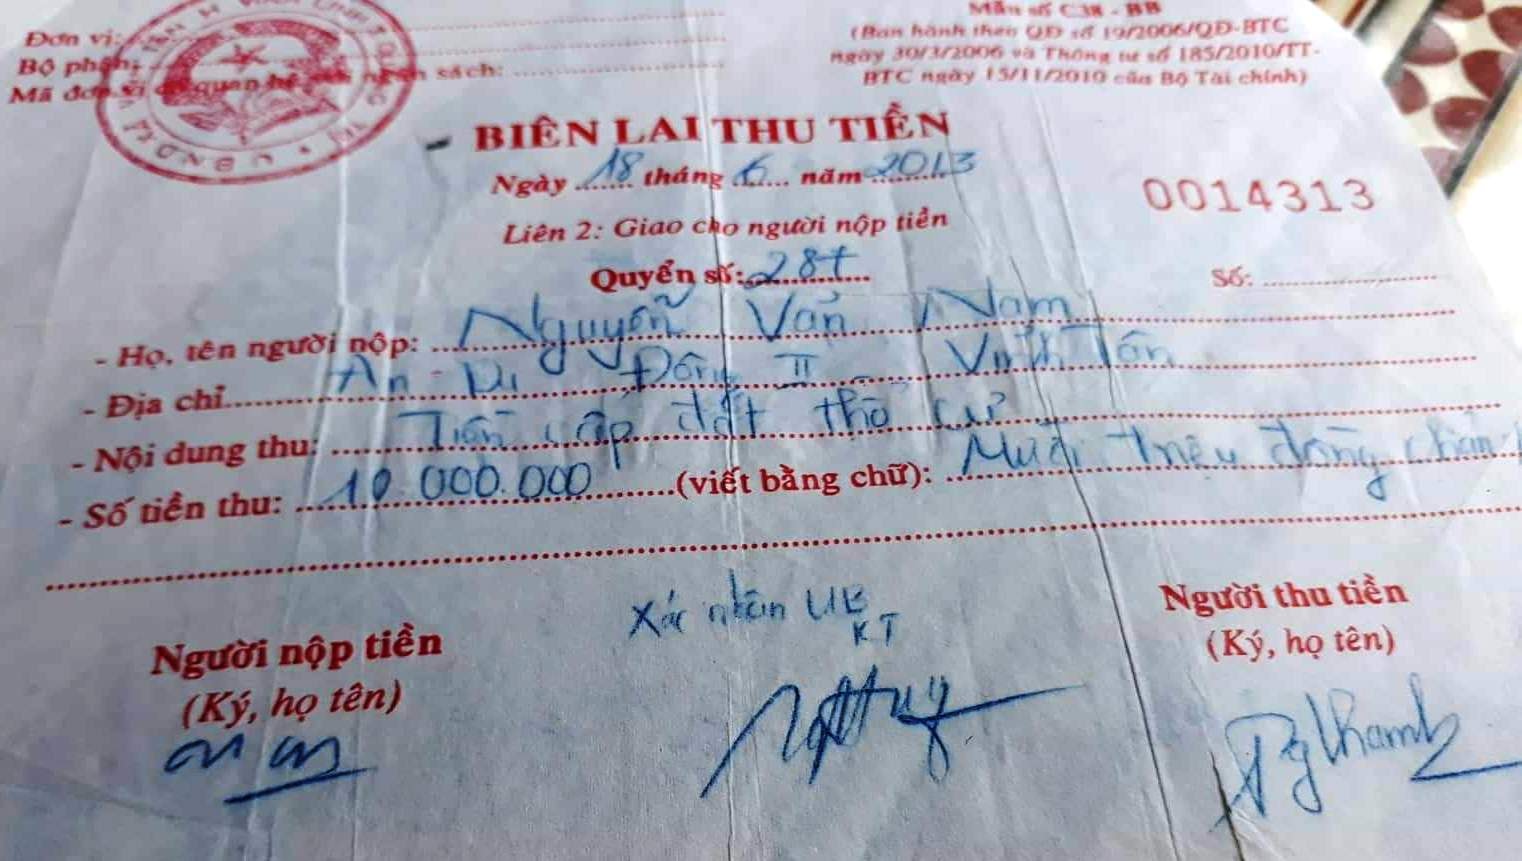 Mẫu số C38 - BB
(Ban hành theo QĐ số 19/2006/QĐ-BTC
ngày 30/3/2006 và Thông tư số 185/2010/TT-
BTC ngày 15/11/2010 của Bộ Tài chính)
Đơn vị:
Bộ phận:
Mã đơn vị có quan hệ với ngân sách:
BIÊN LAI THU TIỀN
Ngày 18 tháng 6 năm 2013
0014313
Liên 2: Giao cho người nộp tiền
Quyển số: 287
Số:
- Họ, tên người nộp: Nguyễn Văn Nam
- Địa chỉ An Di Đông II Vĩnh Tân
- Nội dung thu: Tiền cấp đất thổ cư
- Số tiền thu: 10.000.000 (viết bằng chữ): Mười triệu đồng chẵn
Xác nhân UB
KT
Người nộp tiền
(Ký, họ tên)
Người thu tiền
(Ký, họ tên)